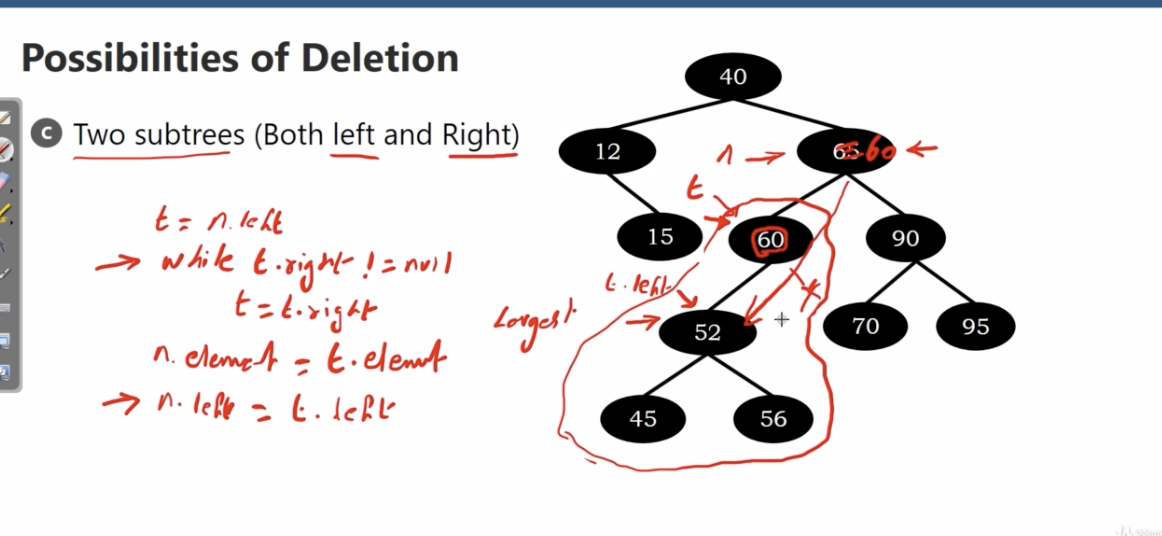 Possibilities of Deletion
C Two subtrees (Both left and Right)
t = n.left
while t.right != null
t = t.right
n.element = t.element
n.left = t.left
40
12
n
65 60
t
15
60
90
t.left
Largest
52
70
95
45
56